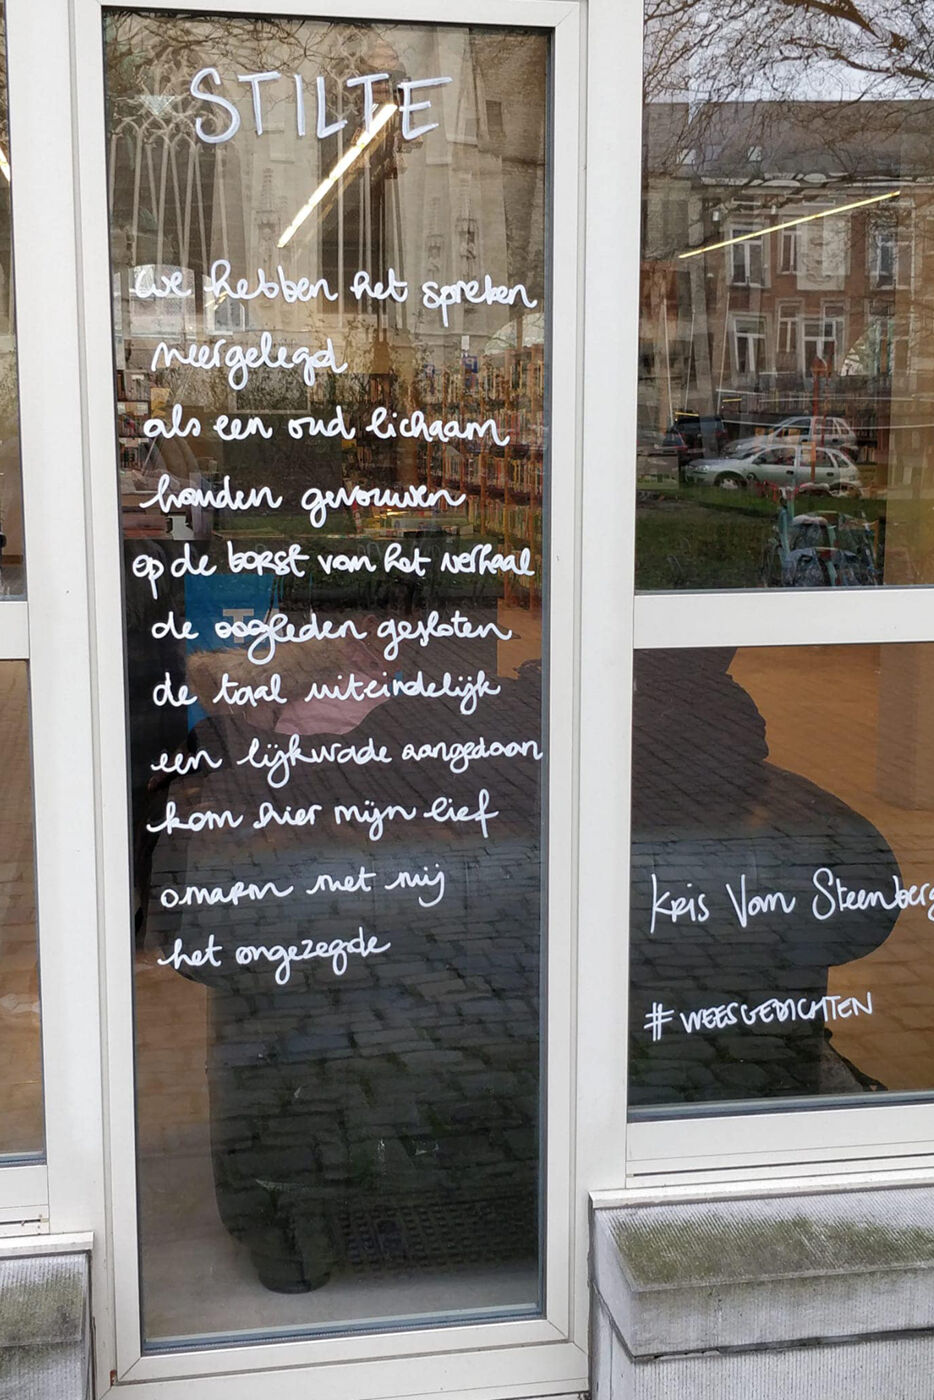 STILTE
we hebben het spreken
neergelegd
als een oud lichaam
handen gevouwen
op de borst van het verhaal
de oogleden gesloten
de taal uiteindelijk
een lijkwade aangedaan
kom hier mijn lief
omarm met mij
het ongezegde
Kris Van Steenberg
#WEESGEDICHTEN